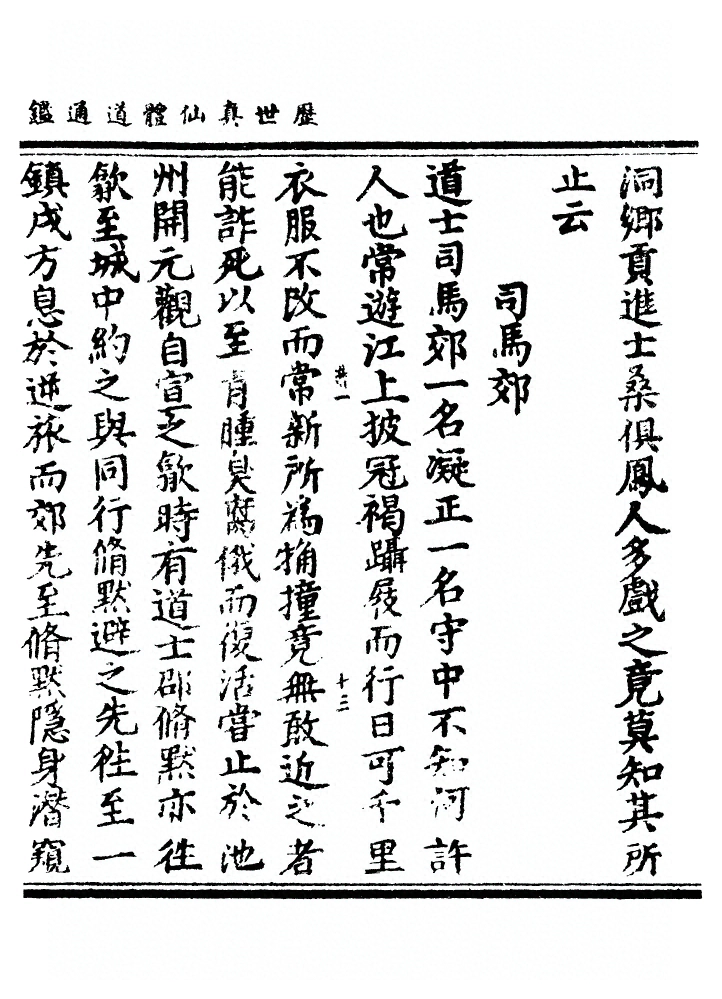 歷世真仙體道通鑑
洞鄉貢進士桑俱鳳人多戲之竟莫知其所
止云
司馬郊
道士司馬郊一名凝正一名守中不知何許
人也常遊江上披冠褐躡屐而行日可千里
衣服不改而常新所為觕撞竟無敢近之者
能詐死以至青腫臭𦤀俄而復活嘗止於池
州開元觀自宣之歙時有道士邵脩默亦往
歙至城中約之與同行脩默避之先往至一
鎮戍方息於逆旅而郊先至脩默隱身潛窺
十三